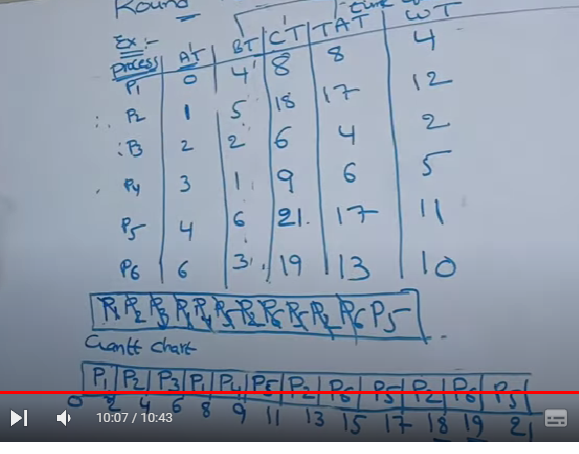 Round
Ex:-
Process AT BT CT TAT WT
P1 0 4 8 8 4
P2 1 5 18 17 12
P3 2 2 6 4 2
P4 3 1 9 6 5
P5 4 6 21 17 11
P6 6 3 19 13 10
P1 P2 P3 P1 P4 P5 P2 P6 P5 P2 P6 P5
Gantt chart
P1 P2 P3 P1 P4 P5 P2 P6 P5 P2 P6 P5
0 2 4 6 8 9 11 13 15 17 18 19 21
10:07 / 10:43